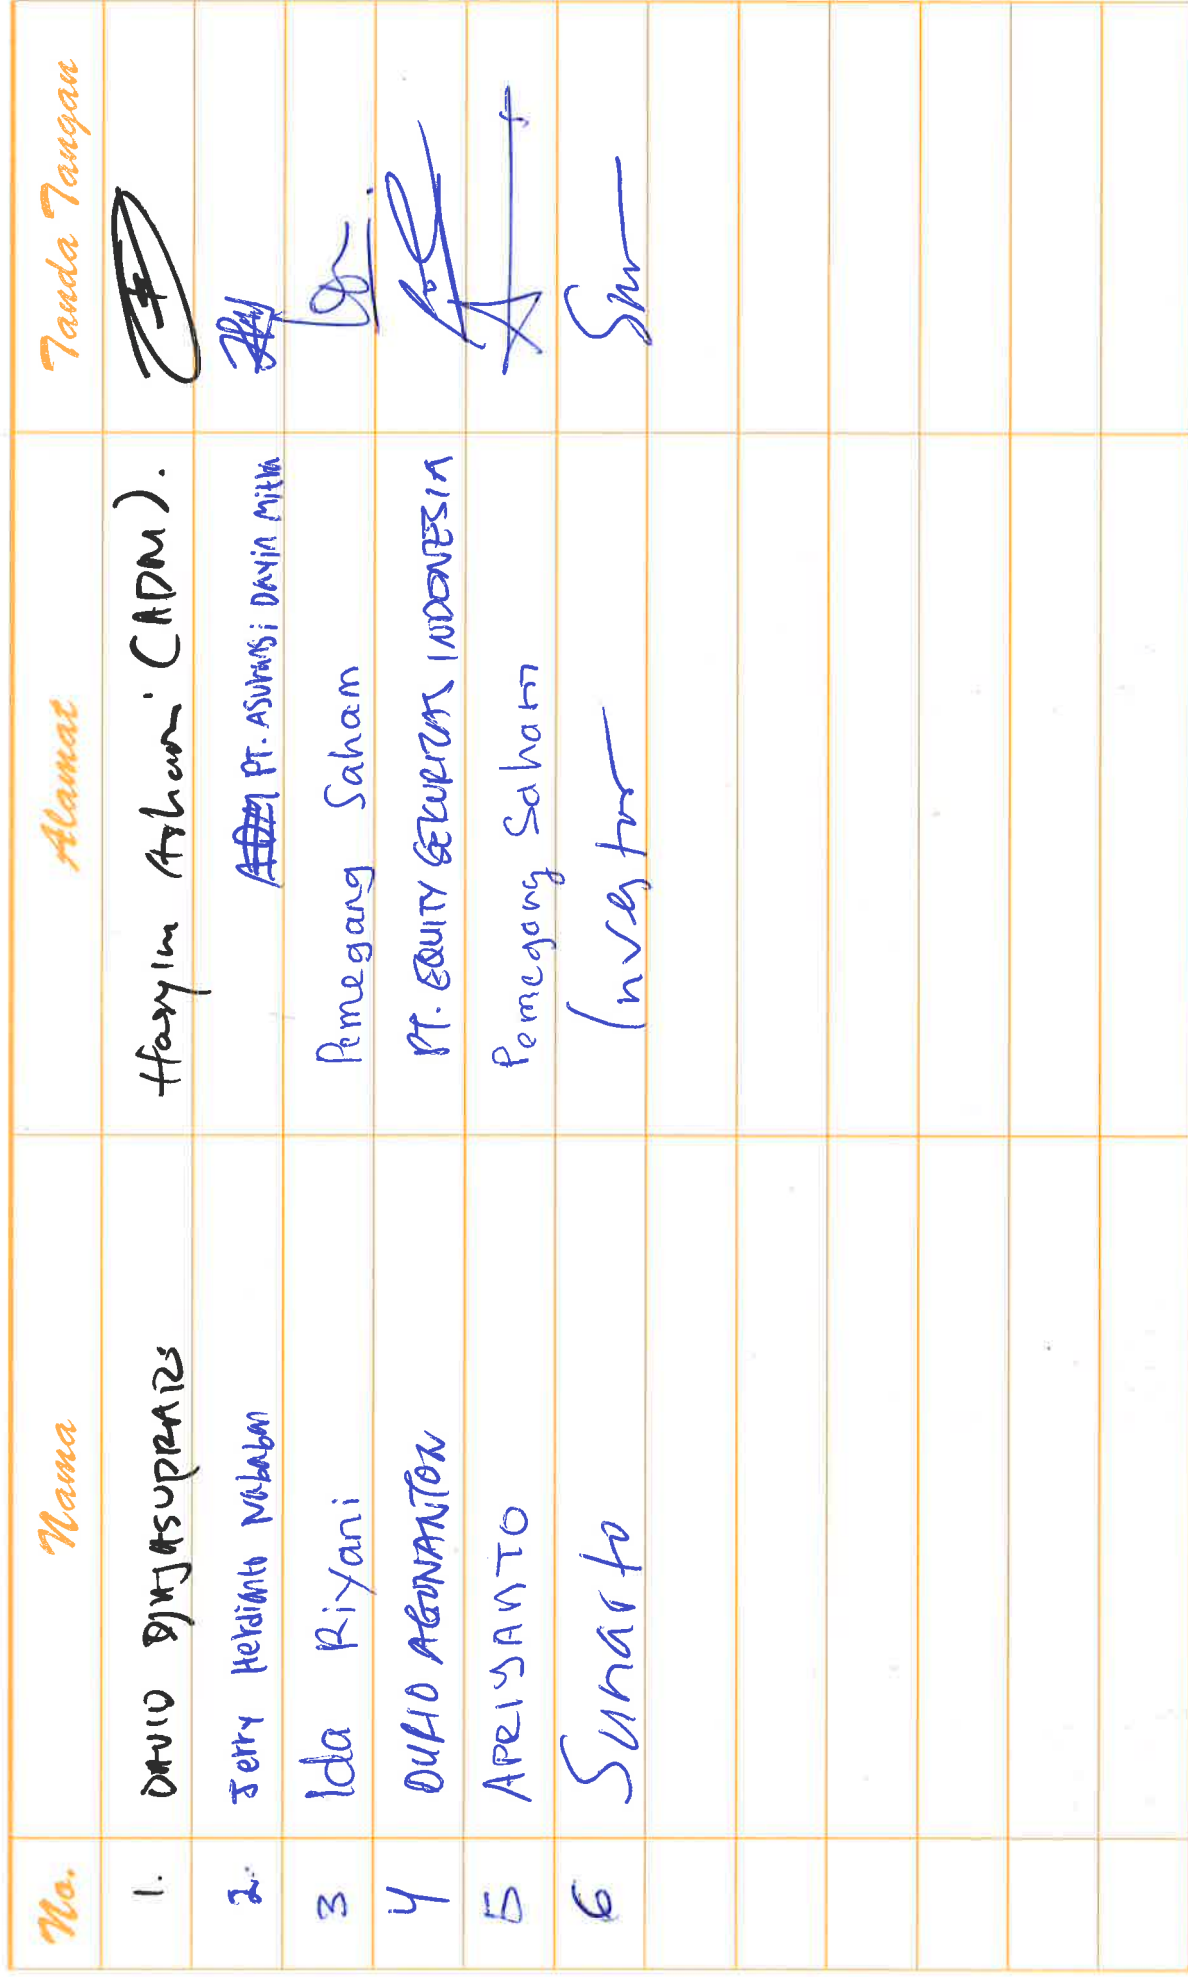 No. Nama Alamat Tanda Tangan
1. DAVID DJAJASUPRATS Hasyim Ashari (ADM).
2. Jerry Herdianto Nababan PT. ASURANSi DAYiN MiTRA
3 Ida Riyani Pemegang Saham
4 PT. EQUITY SEKURITAS INDONESIA
5 APRIYANTO Pemegang Saham
6 Sunarto Investor